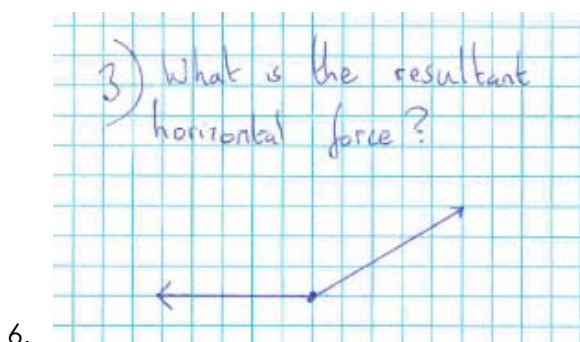 3) What is the resultant
horizontal force?
6.